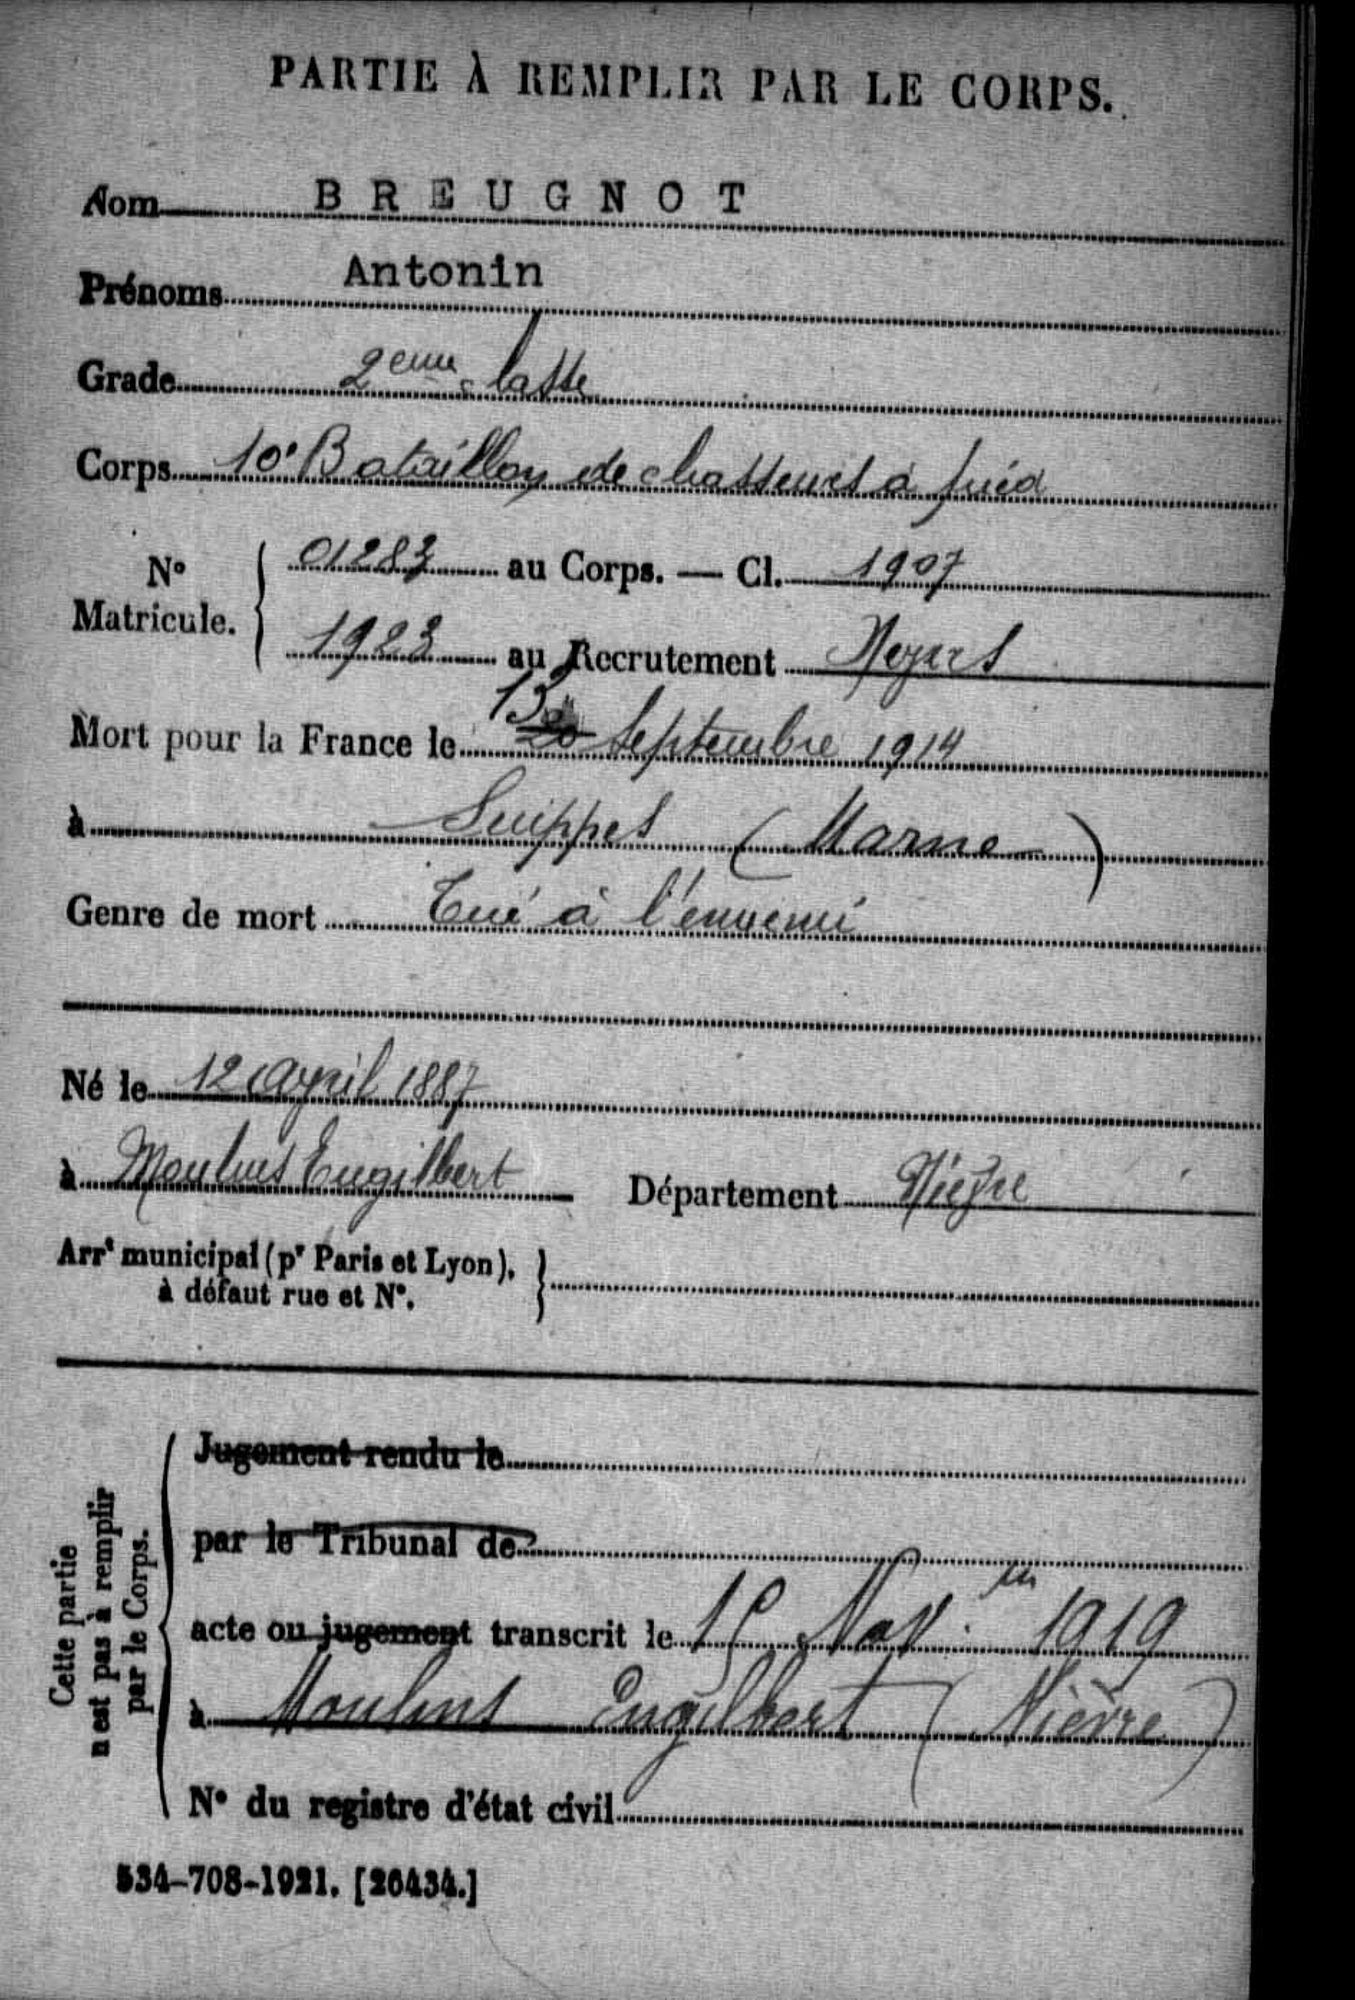 PARTIE À REMPLIR PAR LE CORPS.
Nom BREUGNOT
Prénoms Antonin
Grade 2eme classe
Corps 10e Bataillon de chasseurs à pied
No Matricule. 01283 au Corps. — Cl. 1907
1923 au Recrutement Nevers
Mort pour la France le 13 20 Septembre 1914
à Suippes (Marne)
Genre de mort Tué à l'ennemi
Né le 12 Avril 1887
à Moulins Engilbert Département Nièvre
Arrt municipal (pr Paris et Lyon),
à défaut rue et No.
Cette partie
n'est pas à remplir
par le Corps.
Jugement rendu le
par le Tribunal de
acte ou jugement transcrit le 15 Nov. 1919
à Moulins Engilbert (Nièvre)
No du registre d'état civil
534-708-1921. [26434.]